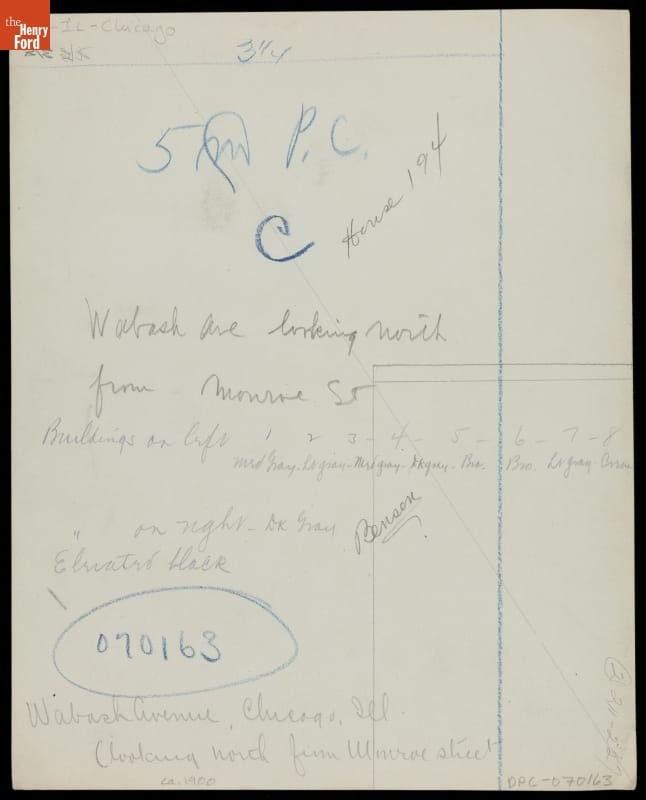 the
Henry
Ford
-IL-Chicago
3 1/4
5 P. C.
C
House 194
Wabash Ave looking north
from Monroe St
Buildings on left 1 2 3 - 4 - 5 - 6 - 7 - 8
Med Gray - Lt gray - Med gray - Dk gray - Bro. Bro. Lt gray -
" on right - Dk Gray
Benson
Elevated black
070163
Wabash Avenue, Chicago, Ill.
(looking north from Monroe street
ca. 1900
DPC-070163